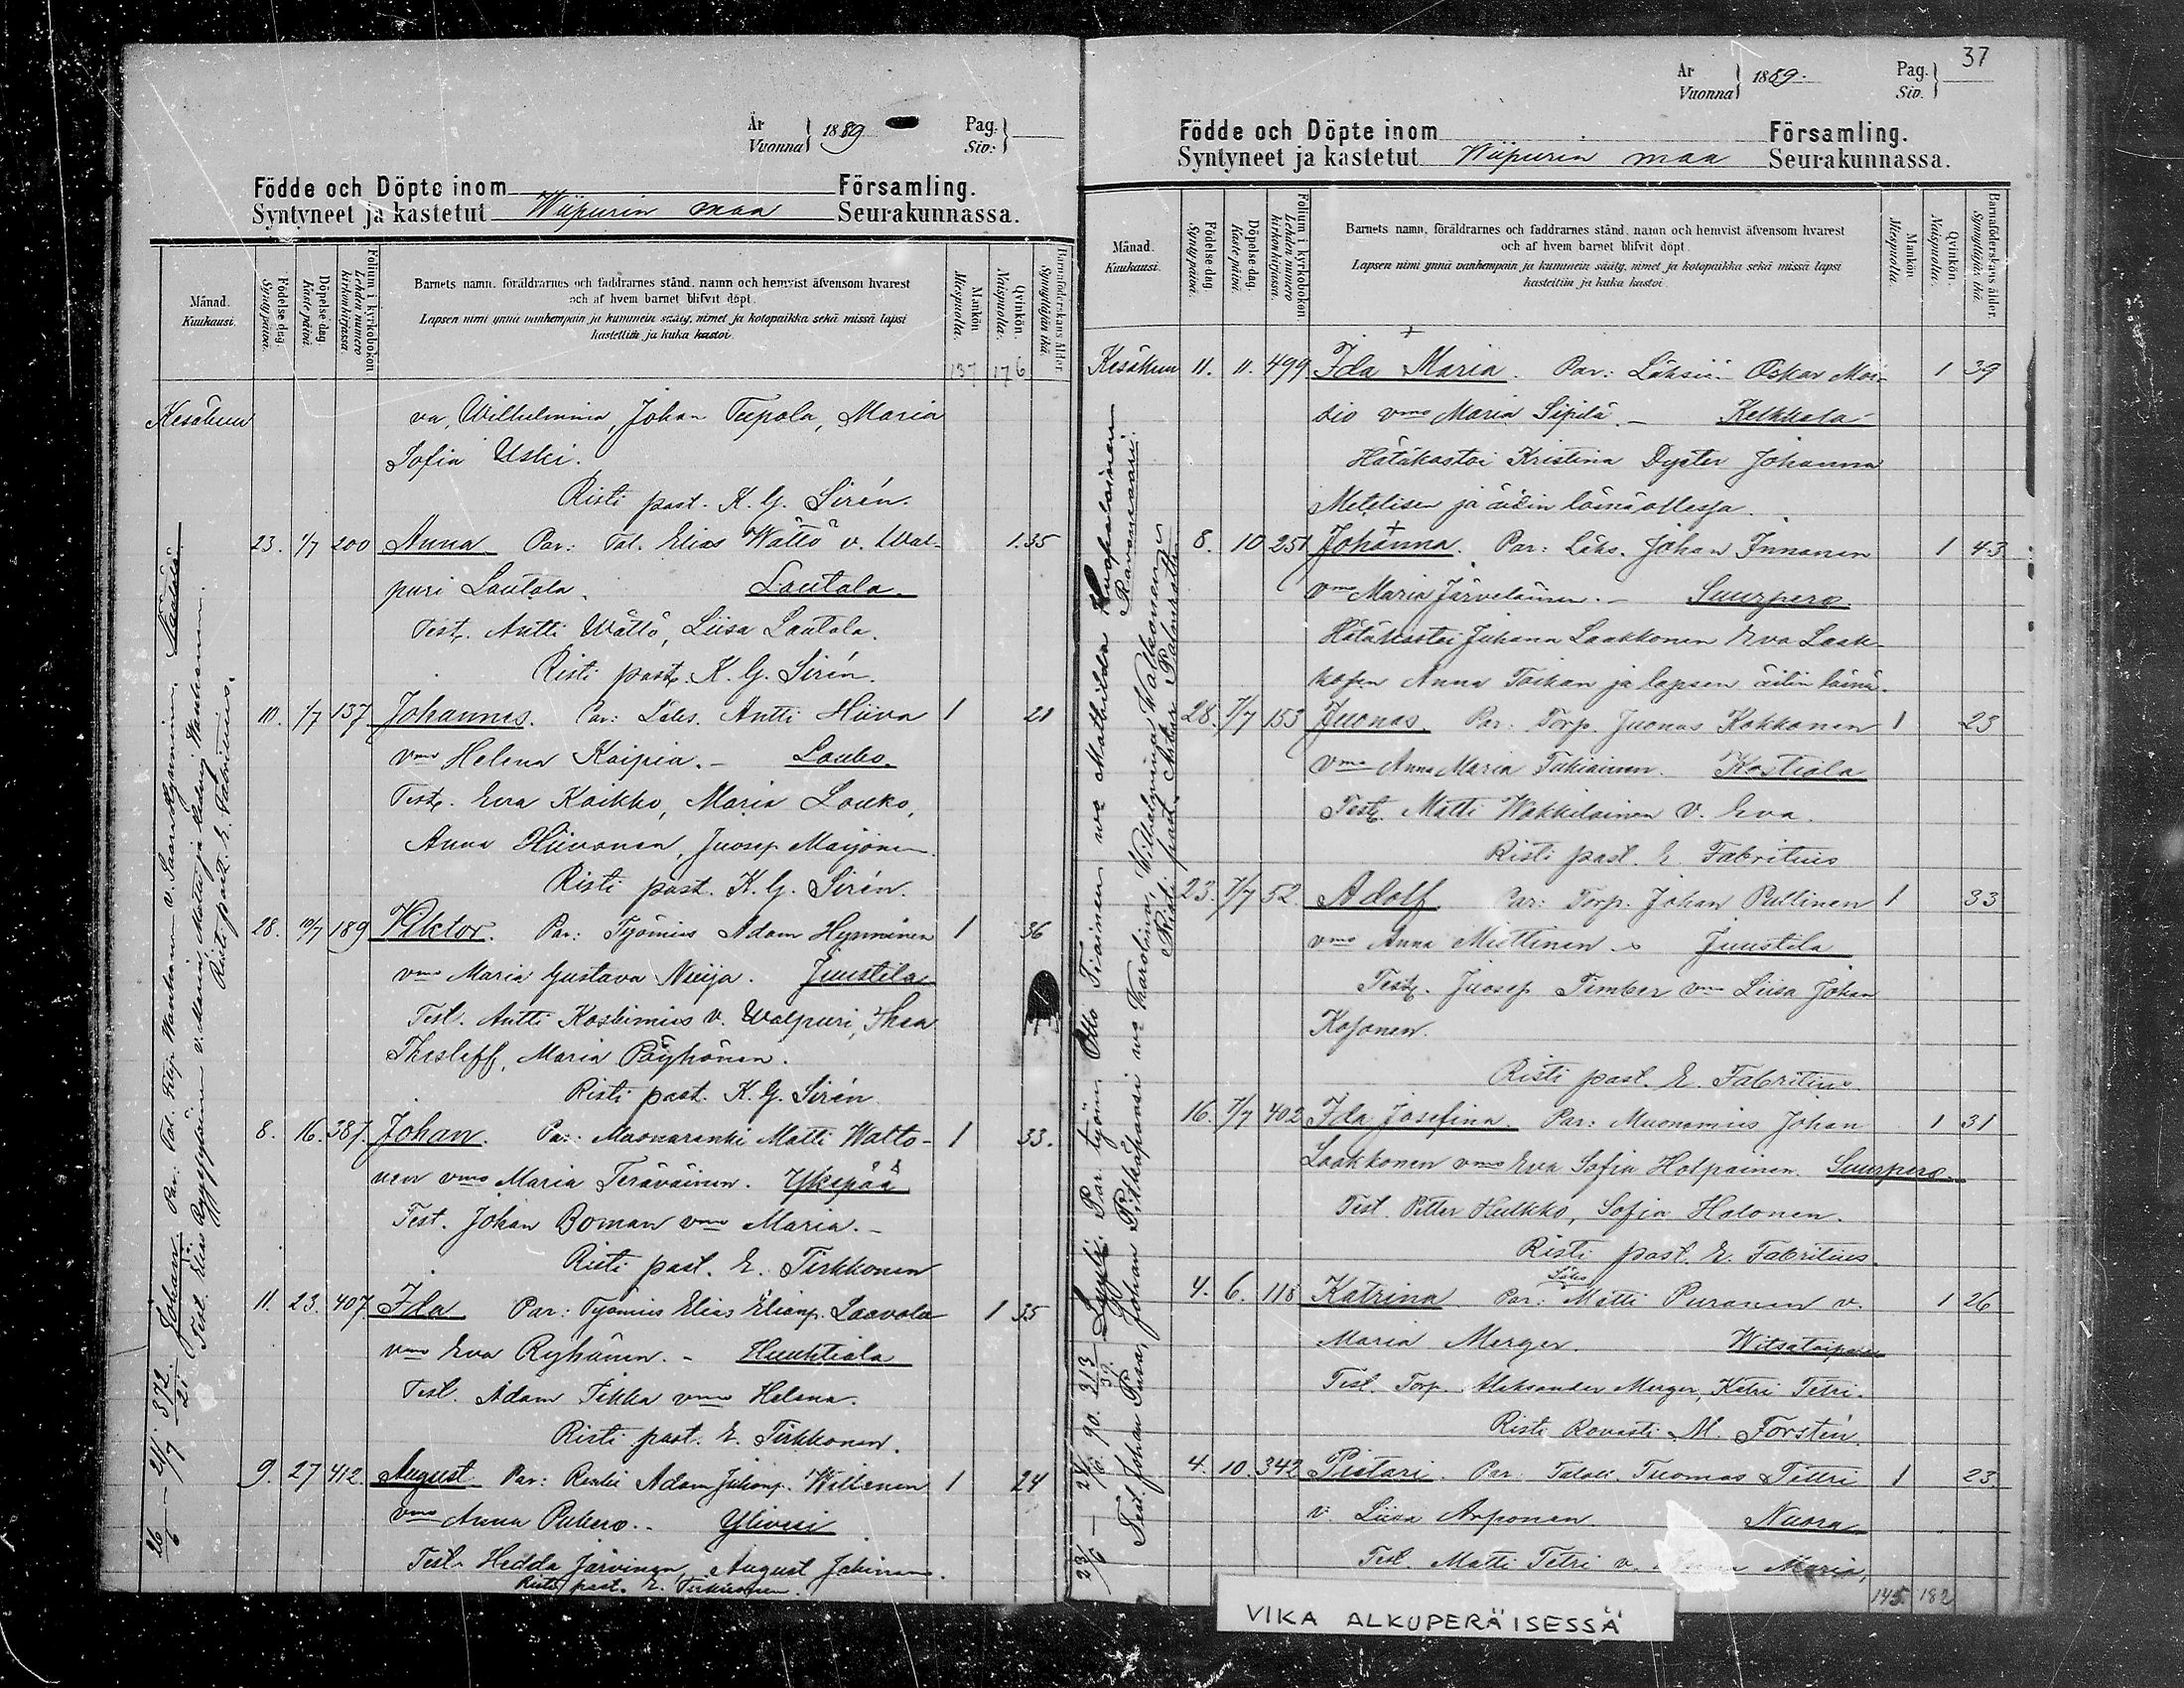 År
Vuonna } 1889
Pag.
Siv: }
Födde och Döpte inom Församling.
Syntyneet ja kastetut Wiipurin maa Seurakunnassa.
Månad.
Kuukausi.
Födelse dag.
Syntypäivä.
Döpelse dag.
Kastepäivä.
Folium i kyrkoboken
Lehden numero
kirkonkirjassa.
Barnets namn, föräldrarnes och faddrarnes stånd, namn och hemvist äfvensom hvarest
och af hvem barnet blifvit döpt.
Lapsen nimi ynnä vanhempain ja kummein sääty, nimet ja kotopaikka sekä missä lapsi
kastettiin ja kuka kastoi.
Mankön.
Miespuolta.
Qvinkön.
Naispuolta.
Barnaföderskans ålder.
Synnyttäjän ikä.
137 176
Kesäkuu va, Wilhelmina, Johan Teepola, Maria
Sofia Uski.
Risti past. K. G. Sirén.
23. 1/7 200 Anna Par: Tal. Elias Wättö v. Wal- 1. 35
puri Lautala. Lautala.
Test. Antti Wättö, Liisa Lautala.
Risti past. K. G. Sirén.
10. 1/7 137 Johannes. Par: Läks. Antti Hiiva 1 21
vmo Helena Kaipia. – Louko.
Test. Eva Kaikko, Maria Louko,
Anna Hiivonen, Juosep Maijonen.
Risti past. K. G. Sirén.
28. 10/7 189 Viktor. Par: Työmies Adam Hynninen 1 36
vmo Maria Gustava Nuija. Juustila
Test. Antti Koskimies v. Walpuri, Thea
Thesleff, Maria Pöyhönen.
Risti past. K. G. Sirén
8. 16. 387. Johan. Par: Maonarenki Matti Walto- 1 33.
nen vmo Maria Teräväinen. Ykspää
Test. Johan Boman vmo Maria. –
Risti past. E. Tirkkonen
11. 23. 407. Ida Par: Työmies Elias Elianp. Laavola 1 35
vmo Eva Ryhänen. – Huuhtiala
Test. Adam Tikka vmo Helena.
Risti past. E. Tirkkonen.
9. 27 412. August Par: Renki Adam Juhanp. Willanen 1 24
vmo Anna Pukero. – Ylivesi
Test. Hedda Järvinen, August Jakinen.
Risti past. E. Tirkkonen.
26/6 – 21/7 372/21 Johan Par: Tal. Filip Wanhanen v. Saara Hynninen. Näätälä.
Test. Elias v. Maria, Matti ja Hedvig Wanhanen.
Risti past. E. Fabritius.
37
År
Vuonna } 1889.
Pag.
Siv. }
Födde och Döpte inom Församling.
Syntyneet ja kastetut Wiipurin maa Seurakunnassa.
Månad.
Kuukausi.
Födelse dag.
Syntypäivä.
Döpelse dag.
Kaste päivä.
Folium i kyrkoboken
Lehden numero
kirkonkirjassa.
Barnets namn, föräldrarnes och faddrarnes stånd, namn och hemvist äfvensom hvarest
och af hvem barnet blifvit döpt.
Lapsen nimi ynnä vanhempain ja kummein sääty, nimet ja kotopaikka sekä missä lapsi
kastettiin ja kuka kastoi.
Mankön.
Miespuolta.
Qvinkön.
Naispuolta.
Barnaföderskans ålder.
Synnyttäjän ikä.
Kesäkuu 11. 11. 499 Ida Maria. Par: Läksiä. Oskar Moi- 1 39
sio vmo Maria Sipilä. – Kelkkala
Hätäkastoi Kristina Dyster Johanna
Metelisen ja äidin läsnäollessa.
8. 10 251 Johanna. Par: Läks. Johan Innanen 1 43
vmo Maria Järveläinen. – Suurpero.
Hätäkastoi Juhana Laakkonen Eva Laak-
kosen Anna Toikan ja lapsen äitin läsnä.
28. 7/7 153 Juonas. Par: Torp. Juonas Kokkonen 1 23
vmo Anna Maria Tukiainen. Kostiala
Test. Matti Wakkilainen v. Eva.
Risti past. E. Fabritius
23. 7/7 52. Adolf Par: Torp. Johan Pullinen 1 33
vmo Anna Miettinen Juustila
Test. Juosep Timber vmo Liisa Johan
Kosonen.
Risti past. E. Fabritius.
16. 7/7 402 Ida Josefina. Par: Muonamies Johan 1 31
Laakkonen vmo Eva Sofia Holpainen. Suurpero.
Test. Petter Hulkko, Sofia Halonen.
Risti past. E. Fabritius.
Läks
4. 6. 118 Katrina Par: Matti Puranen v. 1 26
Maria Merger. Witsataipale
Test. Torp. Aleksander Merger, Katri Tetri.
Risti Rovasti M. Forstén.
4. 10. 342 Pietari. Par. Talall. Tuomas Tettri 1 23.
v. Liisa Arponen. Nuora
Test. Matti Tetri v. Maria,
145 182
23/6 – 24/6 90. 313/39 Lyyli. Par työm Otto Tiainen wa Mathilda Huopalainen
Ravansaari.
Test. Johan Pusa, Johan Pitkäpaasi wa Karolina, Wilhelmina Walkonen
Risti past. Artur Palmroth
VIKA ALKUPERÄISESSÄ